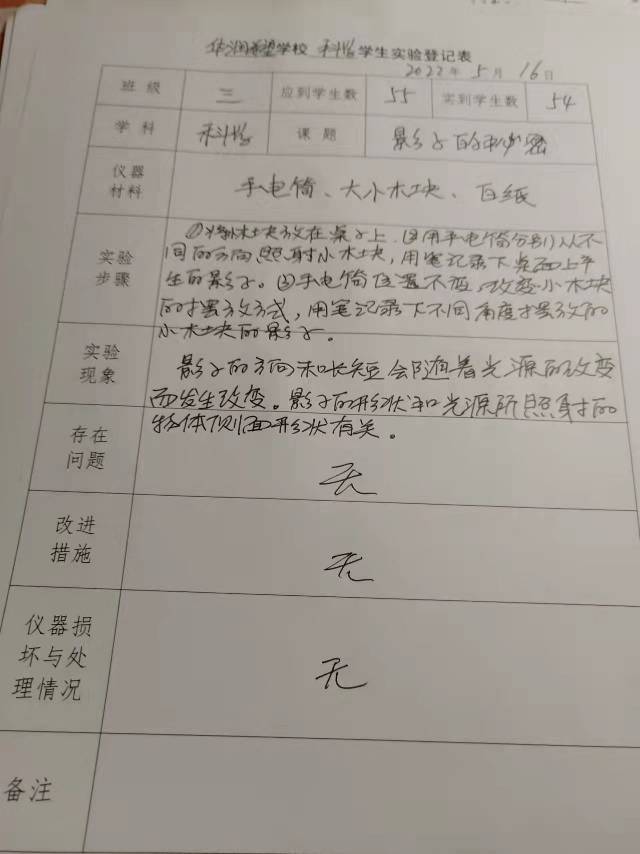 华润希望学校 科学学生实验登记表
2022年5月16日
班级 三 应到学生数 55 实到学生数 54
学科 科学 课题 影子的秘密
仪器材料 手电筒、大小木块、白纸
实验步骤
①将木块放在桌子上。②用手电筒分别从不
同的方向照射小木块,用笔记录下桌面上产
生的影子。③手电筒位置不变,改变小木块
的摆放方式,用笔记录下不同角度摆放的
小木块的影子。
实验现象
影子的方向和长短会随着光源的改变
而发生改变。影子的形状和光源所照射的
物体侧面形状有关。
存在问题 无
改进措施 无
仪器损坏与处理情况 无
备注